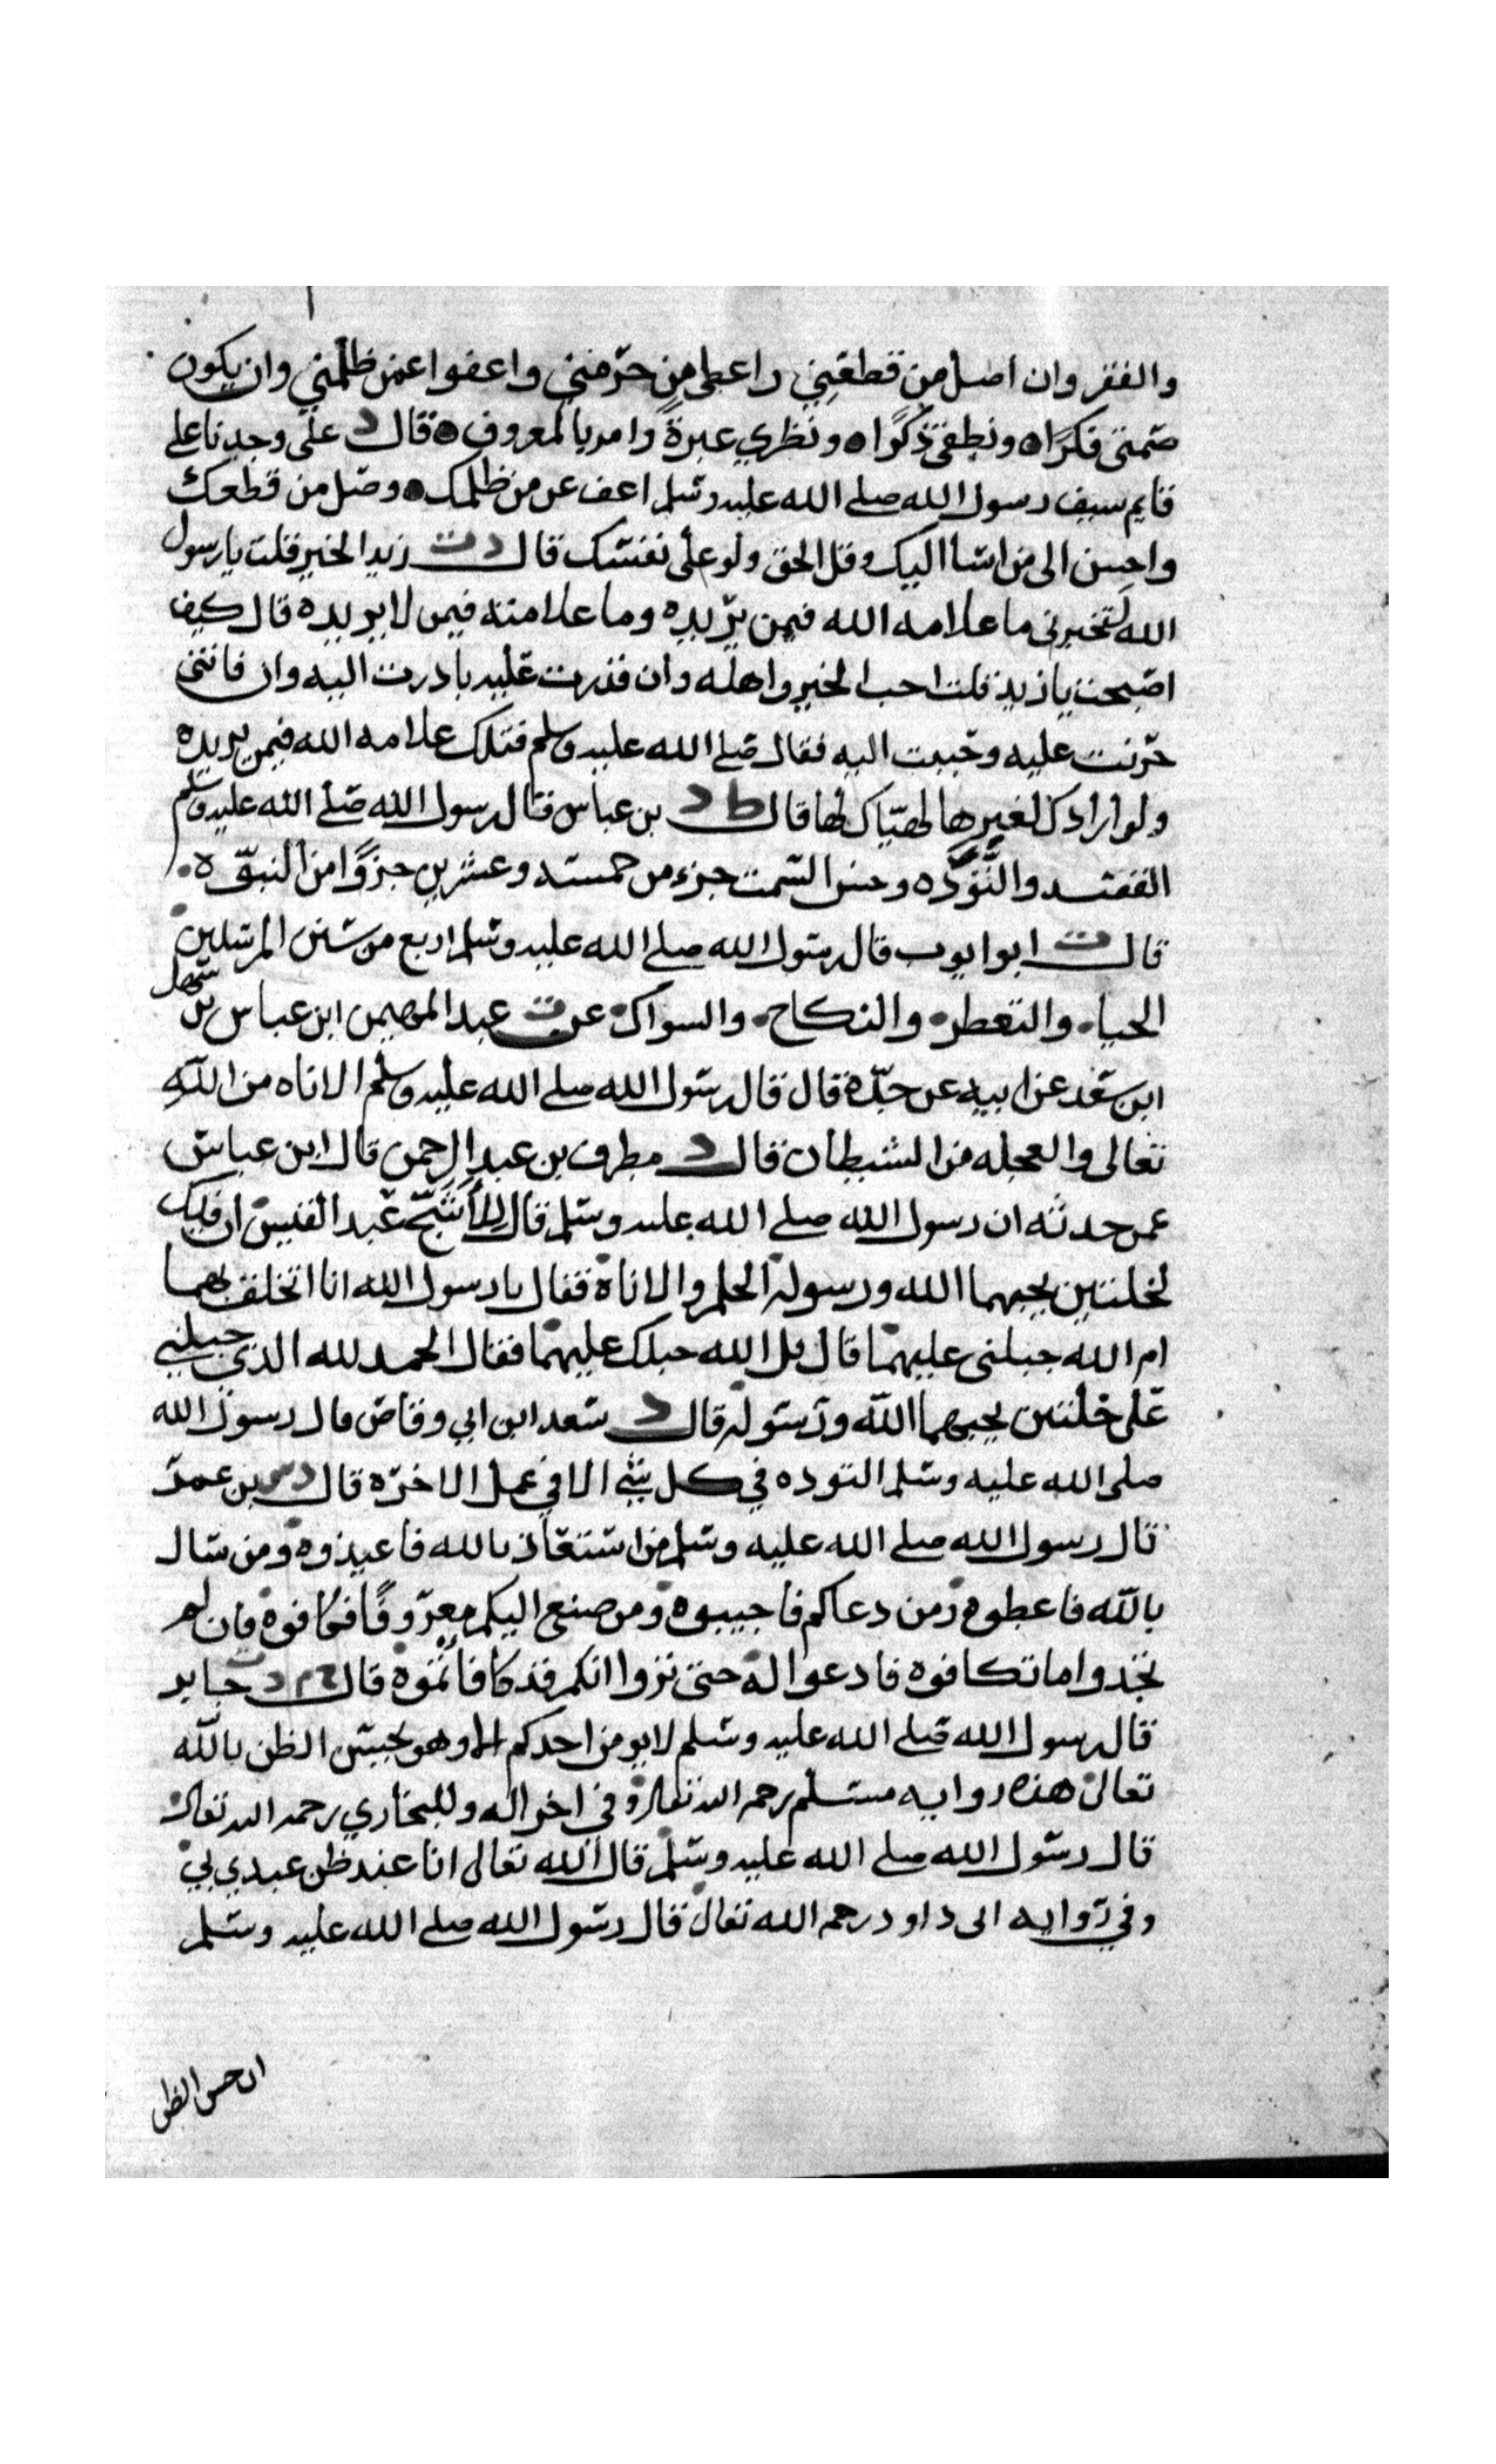 والفقر وان اصل من قطعني واعطى من حرمني واعفوا عمن ظلمني وان يكون
صمتى فكرًا ونطقى ذكرًا ونظري عبرةً وامر بالمعروف قال د على وجدنا على
قايم سيف رسول الله صلى الله عليه وسلم اعف عن من ظلمك وصل من قطعك
واحسن الى من اسا اليك وقل الحق ولو على نفسك قال دت زيد الخير قلت يا رسول
الله لتخبرنى ما علامه الله فيمن يريده وما علامته فيمن لا يريده قال كيف
اصبحت يا زيد قلت احب الخير واهله وان قدرت عليه بادرت اليه وان فاتنى
حزنت عليه وحببت اليه فقال صلى الله عليه وسلم فتلك علامه الله فيمن يريده
ولو ارادك لغيرها لهيّاك لها قال ط د بن عباس قال رسول الله صلى الله عليه وسلم
القصد والتَّوَدَّه وحسن السمت جزء من خمسه وعشرين جزوًا من النبوّه
قال ت ابو ايوب قال رسول الله صلى الله عليه وسلم اربع من سنن المرسلين
الحياء والتعطر والنكاح والسواك عن ت عبد المهيمن ابن عباس بن سهل
ابن سعد عن ابيه عن جدّه قال قال رسول الله صلى الله عليه وسلم الاناه من الله
تعالى والعجله من الشيطان قال د مطرف بن عبد الرحمن قال ابن عباس
عمن حدثه ان رسول الله صلى الله عليه وسلم قال للأشجّ عبد القيس ان فيك
لخلتين يحبهما الله ورسوله الحلم والاناة فقال يا رسول الله انا اتخلق بهما
ام الله جبلنى عليهما قال بل الله جبلك عليهما فقال الحمد لله الذي جبلني
على خلتين يحبهما الله ورسوله قال د سعد ابن ابي وقاص قال رسول الله
صلى الله عليه وسلم التوده في كل شئ الا في عمل الاخره قال دس بن عمر
قال رسول الله صلى الله عليه وسلم من استعاذ بالله فاعيذوه ومن سال
بالله فاعطوه ومن دعاكم فاجيبوه ومن صنع اليكم معروفًا فكافوه فان لم
تجدوا ما تكافوه فادعوا له حتى تروا انكم قد كافأتموه قال د جابر
قال رسول الله صلى الله عليه وسلم لا يومن احدكم الا وهو يحسن الظن بالله
تعالى هذه روايه مسلم رحمه الله تعالى وفي اخر اله وللبخاري رحمه الله تعالى
قال رسول الله صلى الله عليه وسلم قال الله تعالى انا عند ظن عبدي بي
وفي روايه ابى داود رحمه الله تعالى قال رسول الله صلى الله عليه وسلم
ان حسن الظن